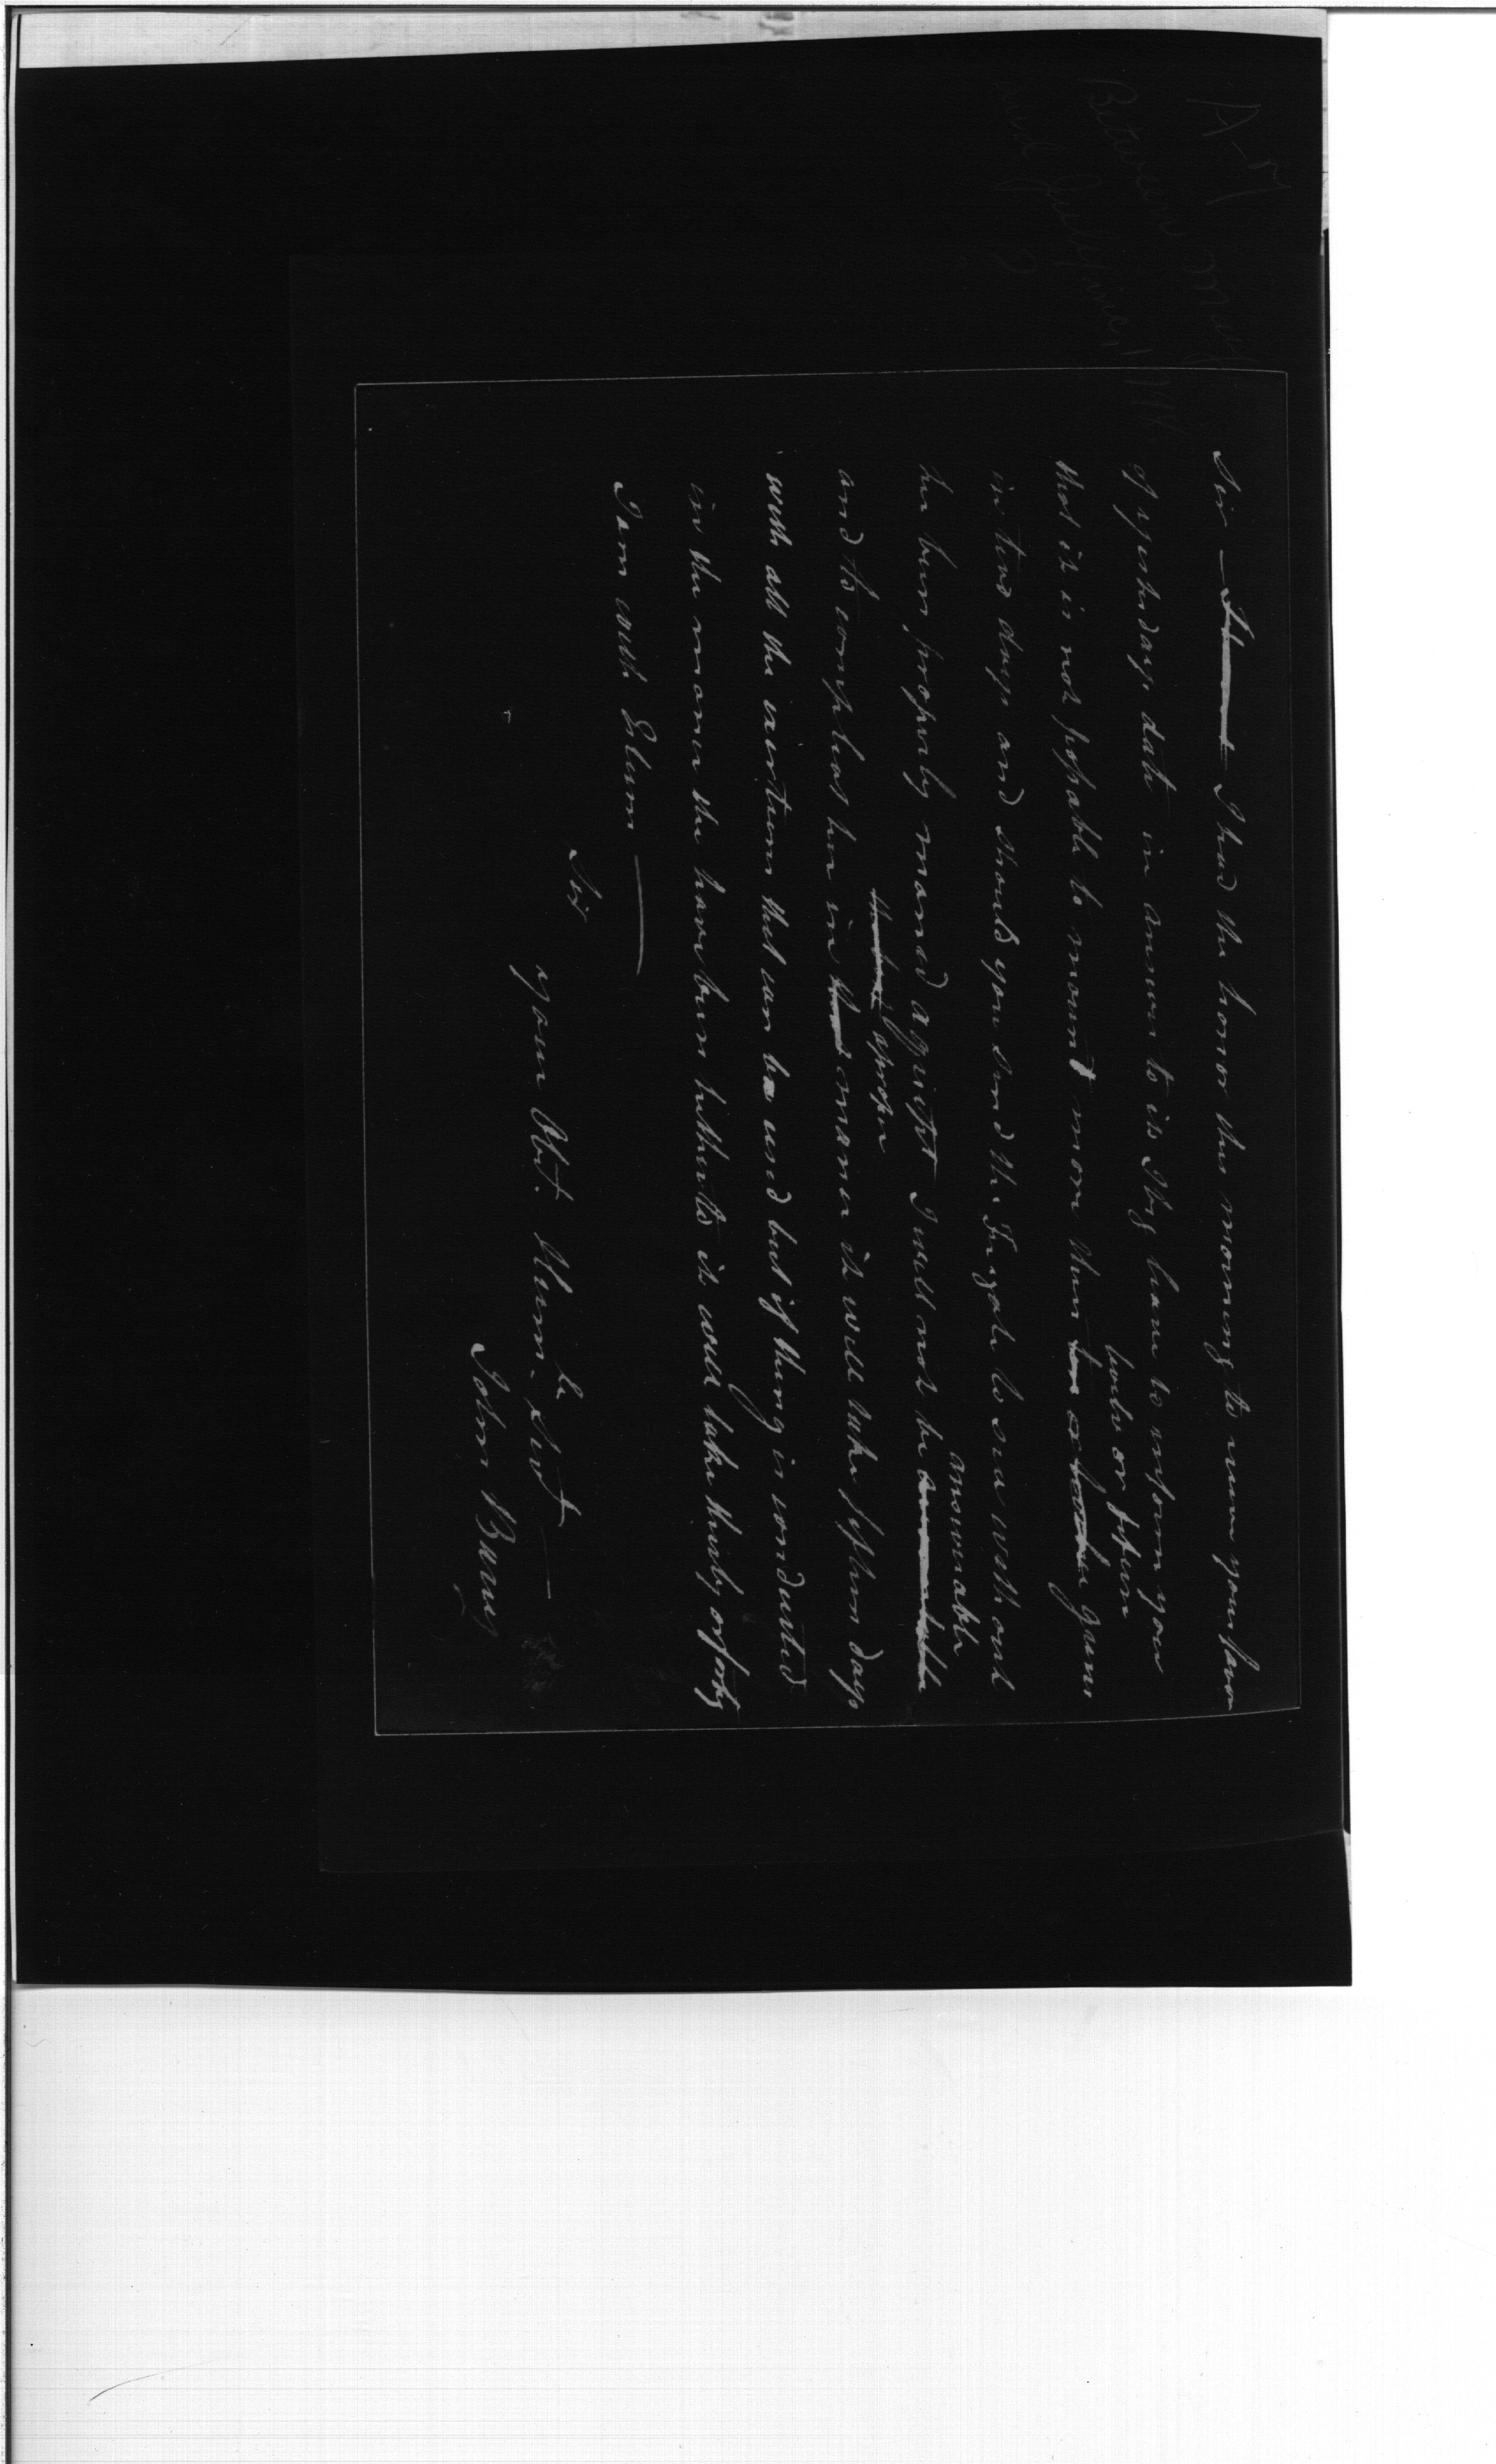 Sir — I had the honor this morning to receve your favor
of yesterdays date in answer to it I beg leave to inform you
twelve or fifteen
that it is not possable to mount more then ten or twelve guns
in two days and should you send the Frigate to sea without
answerable
her been properly maned & equipt I will not be
the best aproper
and to compleat her in maner it will take fifteen days
with all the exertions that can be used but if thing is conducted
in the maner the have been hitherto it will take thirty or forty
I am with Esteem —
Sir
your Obt. Hum. le Sert —
John Barry